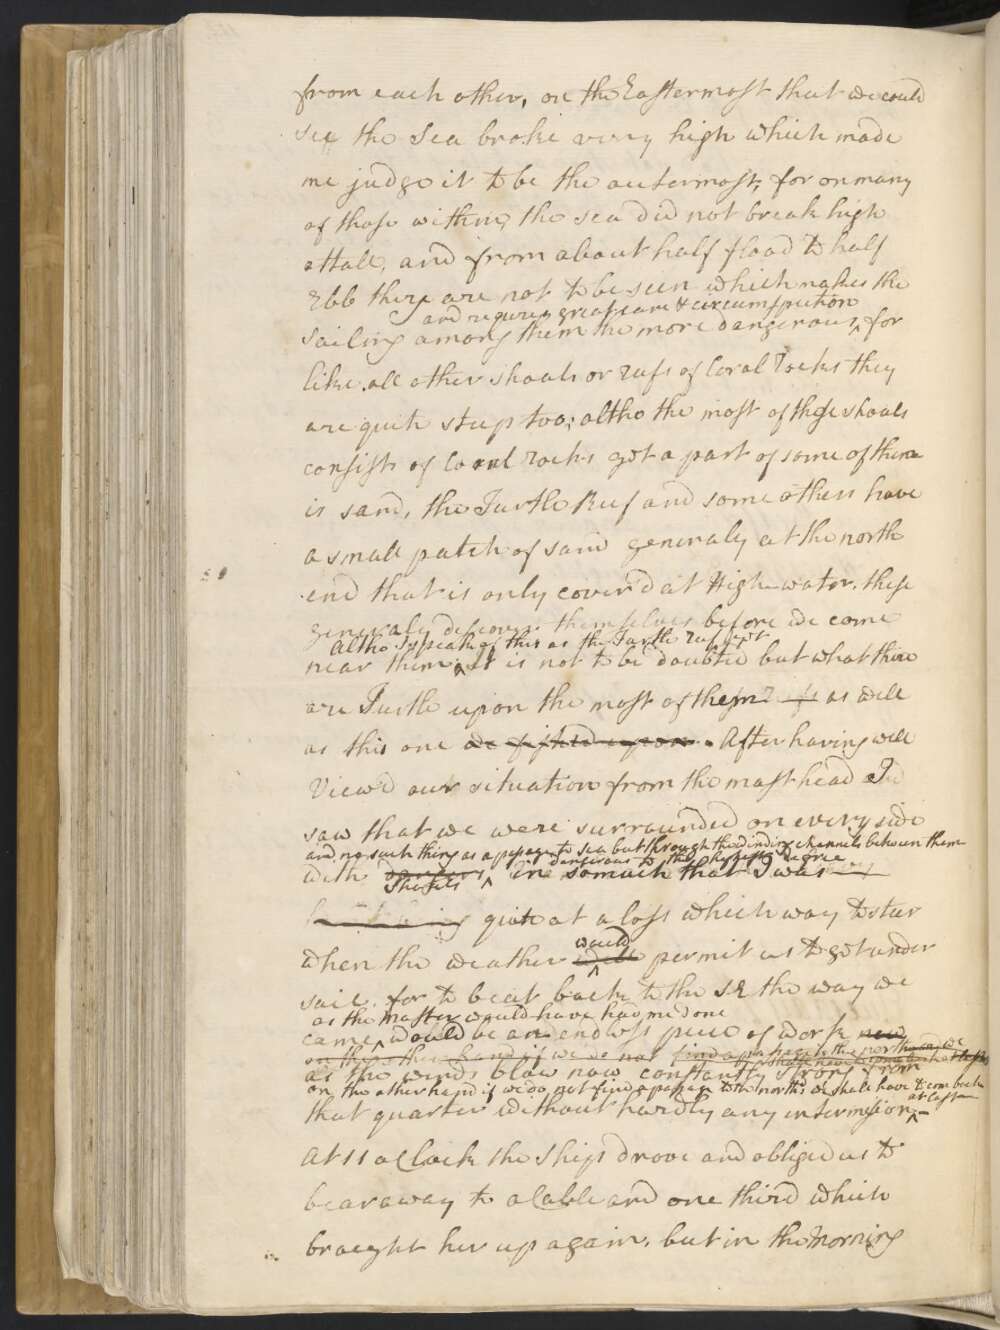 from each other, on the Eastermost that we could
see the Sea broke very high which made
me judge it to be the outermost, for on many
of those within, the sea did not break high
attall, and from about half flood to half
Ebb they are not to be seen which makes the
and requires great care & circumspection
Sailing among them the more dangerous, for
like all other shoals or reefs of Coral Rocks they
are quite steep too; altho the most of these shoals
consists of Coral rocks yet a part of some of them
is sand, the Turtle Reef and some others have
a small patch of sand generaly at the north
end that is only cover'd at High-water. these
generaly discover themselves before we come
Altho I speake of this as the Turtle reef yet
near them, It is not to be doubted but what there
are Turtle upon the most of them as well
as this one we fished upon. After having well
View'd our situation from the mast head I
saw that we were surrounded on every side
and no such thing as a passage to sea but through the winding channels between them
dangerous to the highest degree
with dangers in somuch that I was
Shoals
quite at a loss which way to stear
would
when the weather will permit us to get under
sail. for to beat back to the SE the way we
as the Master would have had me done
came would be an endless peice of work now
on the other hand if we do not find a passage to the northward we
as the winds blow now constantly strong from
on the other hand if we do not find a passage to the northd we shall have to com back
at last
that quarter without hardly any intermission -
At 11 oClock the Ship drove and obliged us to
bear away to a Cable and one third which
brought her up again, but in the Morning